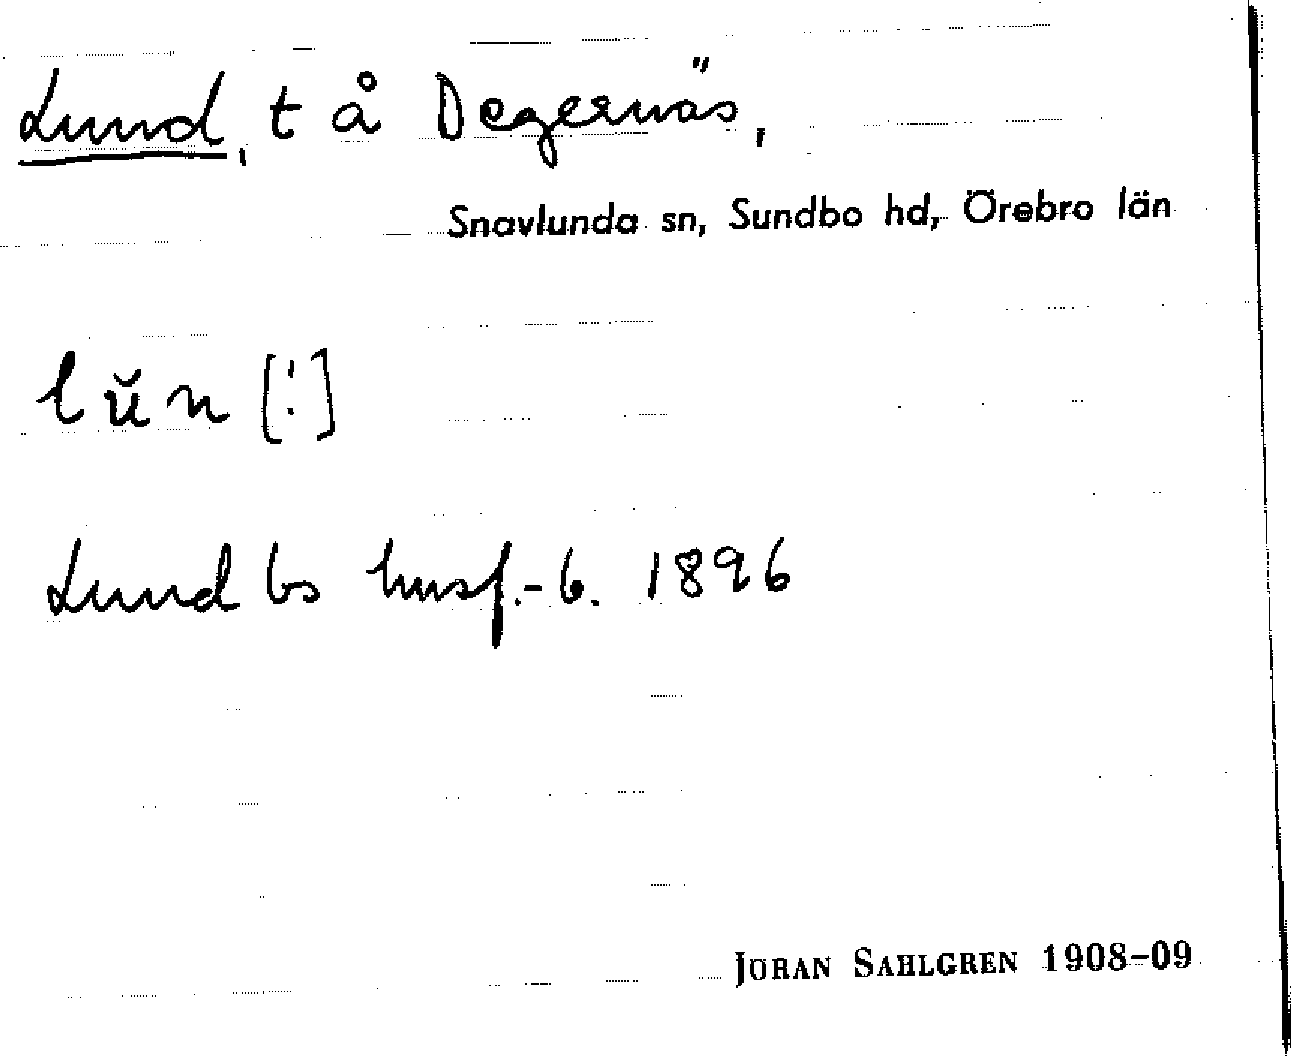 Lund, t å Degernäs,
Snavlunda sn, Sundbo hd, Örebro län
lŭn [!]
Lund bs husf.-b. 1896
JÖRAN SAHLGREN 1908-09